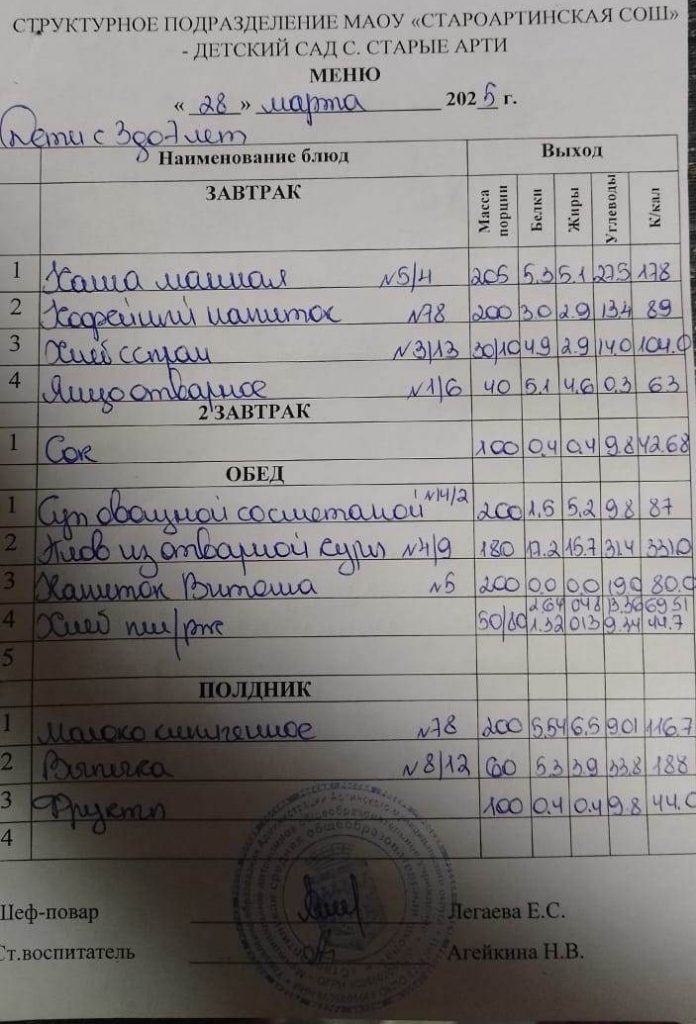 СТРУКТУРНОЕ ПОДРАЗДЕЛЕНИЕ МАОУ «СТАРОАРТИНСКАЯ СОШ»
- ДЕТСКИЙ САД С. СТАРЫЕ АРТИ
МЕНЮ
« 28 » марта 2025 г.
Дети с 3 до 7 лет
Наименование блюд Выход
ЗАВТРАК Масса порции Белки Жиры Углеводы К/кал
1 Каша манная №5/4 205 5.3 5.1 27.5 178
2 Кофейный напиток №78 200 3.0 2.9 13.4 89
3 Хлеб с сыром №3/13 30/10 4.9 2.9 14.0 104.0
4 Яйцо отварное №1/6 40 5.1 4.6 0.3 63
2 ЗАВТРАК
1 Сок 100 0.4 0.4 9.8 42.68
ОБЕД
1 Суп овощной со сметаной №14/2 200 1.5 5.2 9.8 87
2 Плов из отварной куры №4/9 180 17.2 15.7 31.4 331.0
3 Напиток Витошка №5 200 0.0 0.0 19.0 80.0
4 Хлеб пш/рж 50/80 2.64 0.48 13.36 69.51
1.32 013 9.34 44.7
5
ПОЛДНИК
1 Молоко кипяченое №78 200 5.54 6.5 9.01 116.7
2 Выпечка №8/12 60 5.3 3.9 33.8 188
3 Фрукты 100 0.4 0.4 9.8 44.0
4
Шеф-повар Легаева Е.С.
Ст.воспитатель Агейкина Н.В.